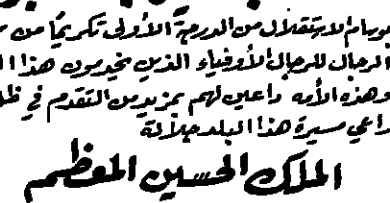 وسام الاستقلال من الدرجة الأولى تكريمًا من
الرجال للرجال الأوفياء الذين يخدمون هذا
وهذه الأمه داعين لهم بمزيد من التقدم في
راعي مسيرة هذا البلد جلالة
الملك الحسين المعظم